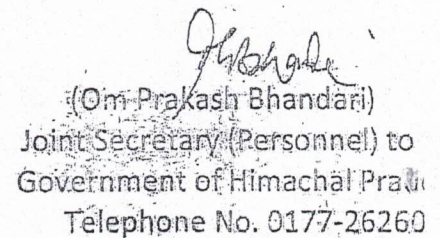 (Om Prakash Bhandari)
Joint Secretary (Personnel) to
Government of Himachal
Telephone No. 0177-26260